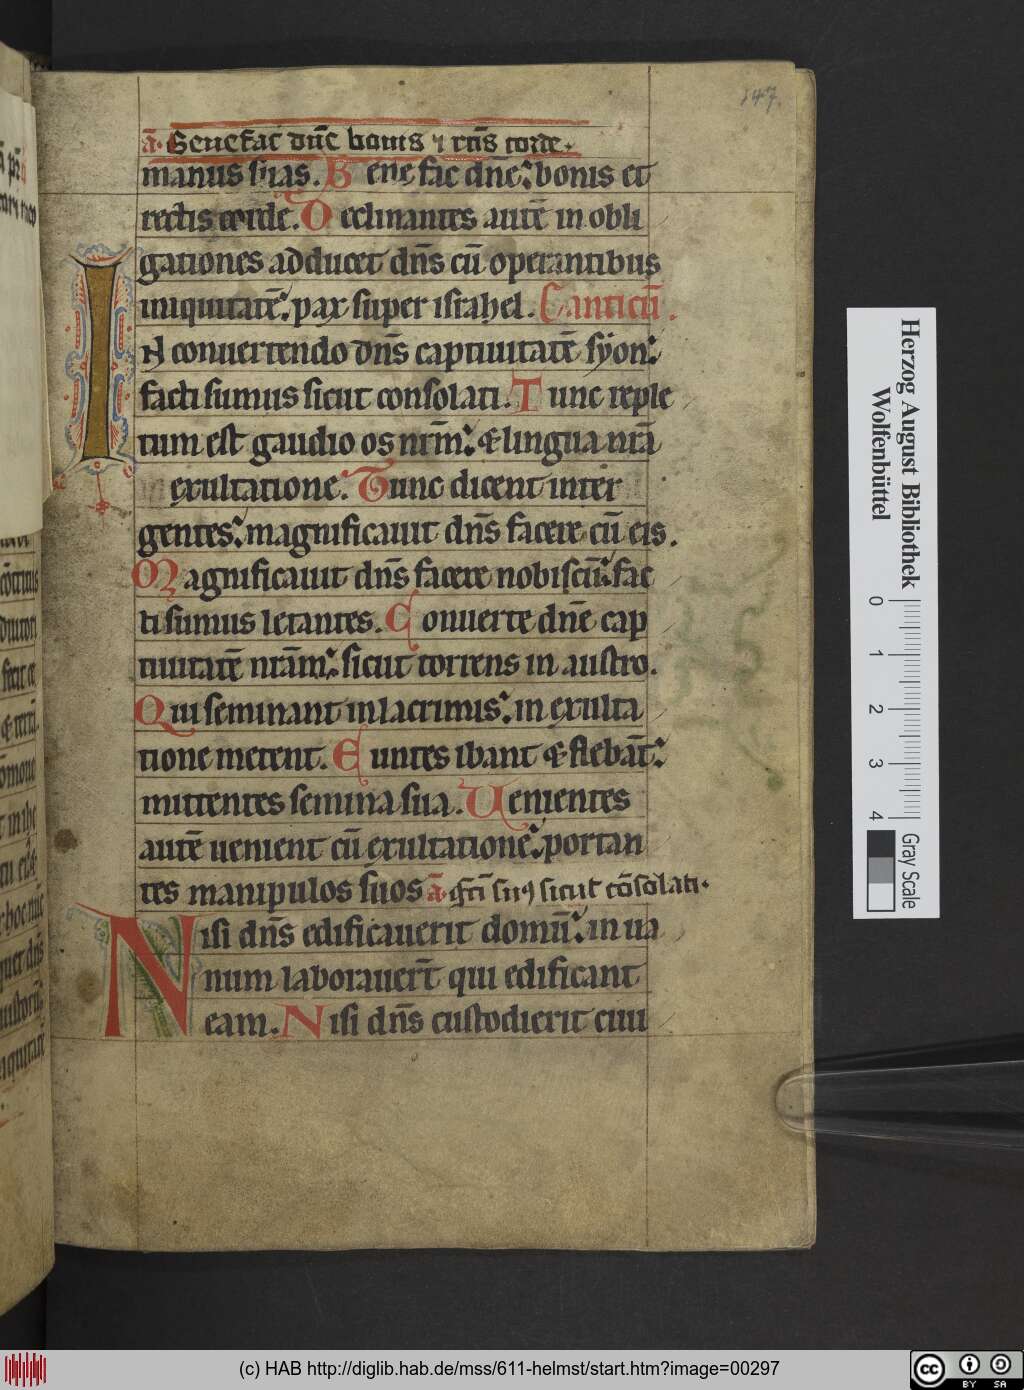 147.
a̅. Benefac dn̅e bonis ⁊ rc̅is corde.
manus suas. Bene fac dn̅e: bonis et
rectis corde. Declinantes aute̅ in obli
gationes adducet dn̅s cu̅ operantibus
iniquitate̅: pax super israhel. Canticu̅.
IN conuertendo dn̅s captiuitate̅ syon:
facti sumus sicut consolati. Tunc reple
tum est gaudio os nr̅m: & lingua nr̅a
exultatione. Tunc dicent inter
gentes: magnificauit dn̅s facere cu̅ eis.
Magnificauit dn̅s facere nobiscu̅: fac
ti sumus letantes. Conuerte dn̅e cap
tiuitate̅ nr̅am: sicut torrens in austro.
Qui seminant in lacrimis: in exulta
tione metent. Euntes ibant & fleba̅t:
mittentes semina sua. Uenientes
aute̅ uenient cu̅ exultatione: portan
tes manipulos suos a̅. fc̅i sum9 sicut co̅solati.
Nisi dn̅s edificauerit domu̅: in ua
num laborauer̅t qui edificant
eam. Nisi dn̅s custodierit ciui
Herzog August Bibliothek
Wolfenbüttel
0 1 2 3 4
Gray Scale
(c) HAB http://diglib.hab.de/mss/611-helmst/start.htm?image=00297
cc BY SA